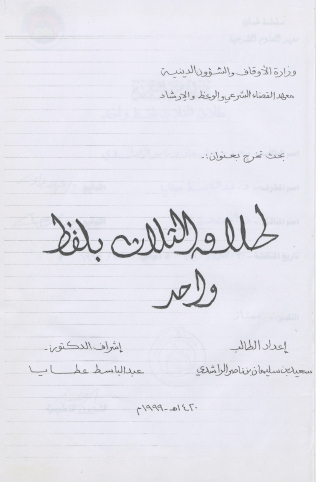 وزارة الأوقاف والشؤون الدينية
معهد القضاء الشرعي والوعظ والإرشاد
بحث تخرج بعنوان:-
طلاق الثلاث بلفظ
واحد
إعداد الطالب
إشراف الدكتور:-
سعيد بن سليمان بن ناصر الراشدي
عبدالباسط عطايا
١٤٢٠هـ-١٩٩٩م